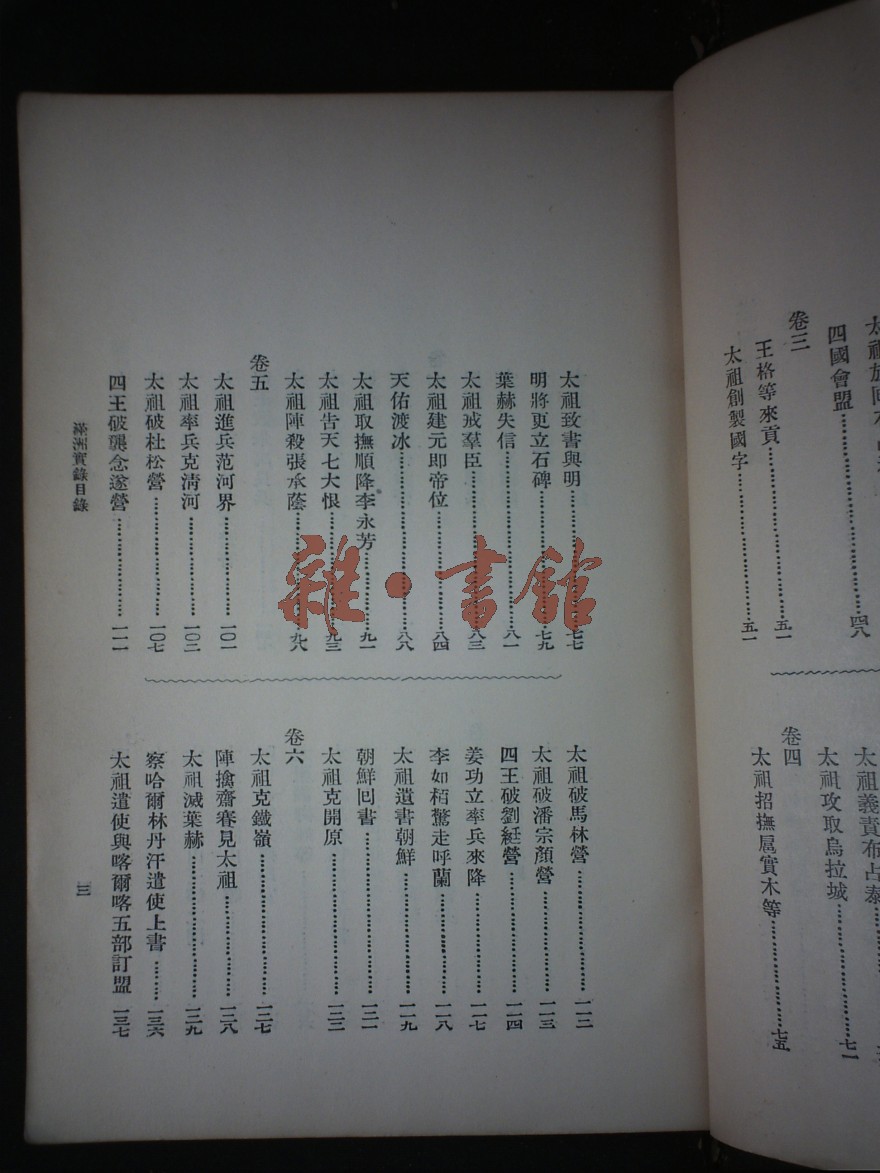 四國會盟……四八
卷三
王格等來貢……五一
太祖創製國字……五一
太祖義責布占泰
太祖攻取烏拉城……七一
卷四
太祖招撫扈實木等……七五
太祖致書與明……七七
明將更立石碑……七九
葉赫失信……八一
太祖戒羣臣……八三
太祖建元即帝位……八四
天佑渡冰……八八
太祖取撫順降李永芳……九一
太祖告天七大恨……九三
太祖陣殺張承蔭……九六
卷五
太祖進兵范河界……一〇一
太祖率兵克清河……一〇二
太祖破杜松營……一〇七
四王破龔念遂營……一一一
太祖破馬林營……一一二
太祖破潘宗顏營……一一三
四王破劉綎營……一一四
姜功立率兵來降……一一七
李如栢驚走呼蘭……一一八
太祖遺書朝鮮……一一九
朝鮮囘書……一二一
太祖克開原……一二三
卷六
太祖克鐵嶺……一二七
陣擒齋賽見太祖……一二八
太祖滅葉赫……一二九
察哈爾林丹汗遣使上書……一三六
太祖遣使與喀爾喀五部訂盟 一三七
滿洲實錄目錄
三
雜·書館